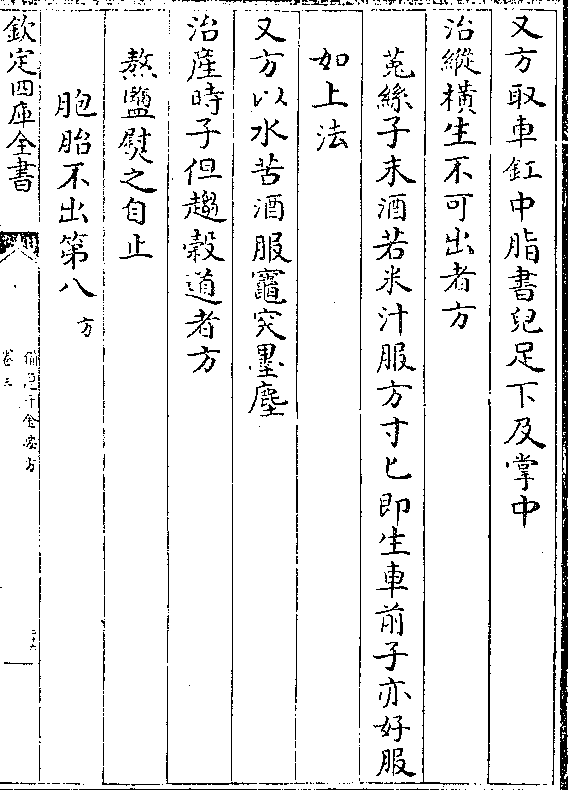 又方取車釭中脂書兒足下及掌中
治縱橫生不可出者方
菟絲子末酒若米汁服方寸匕即生車前子亦好服
如上法
又方以水苦酒服竈突墨塵
治產時子但趨穀道者方
熬鹽熨之自止
胞胎不出第八 方
欽定四庫全書
備急千金要方
卷三